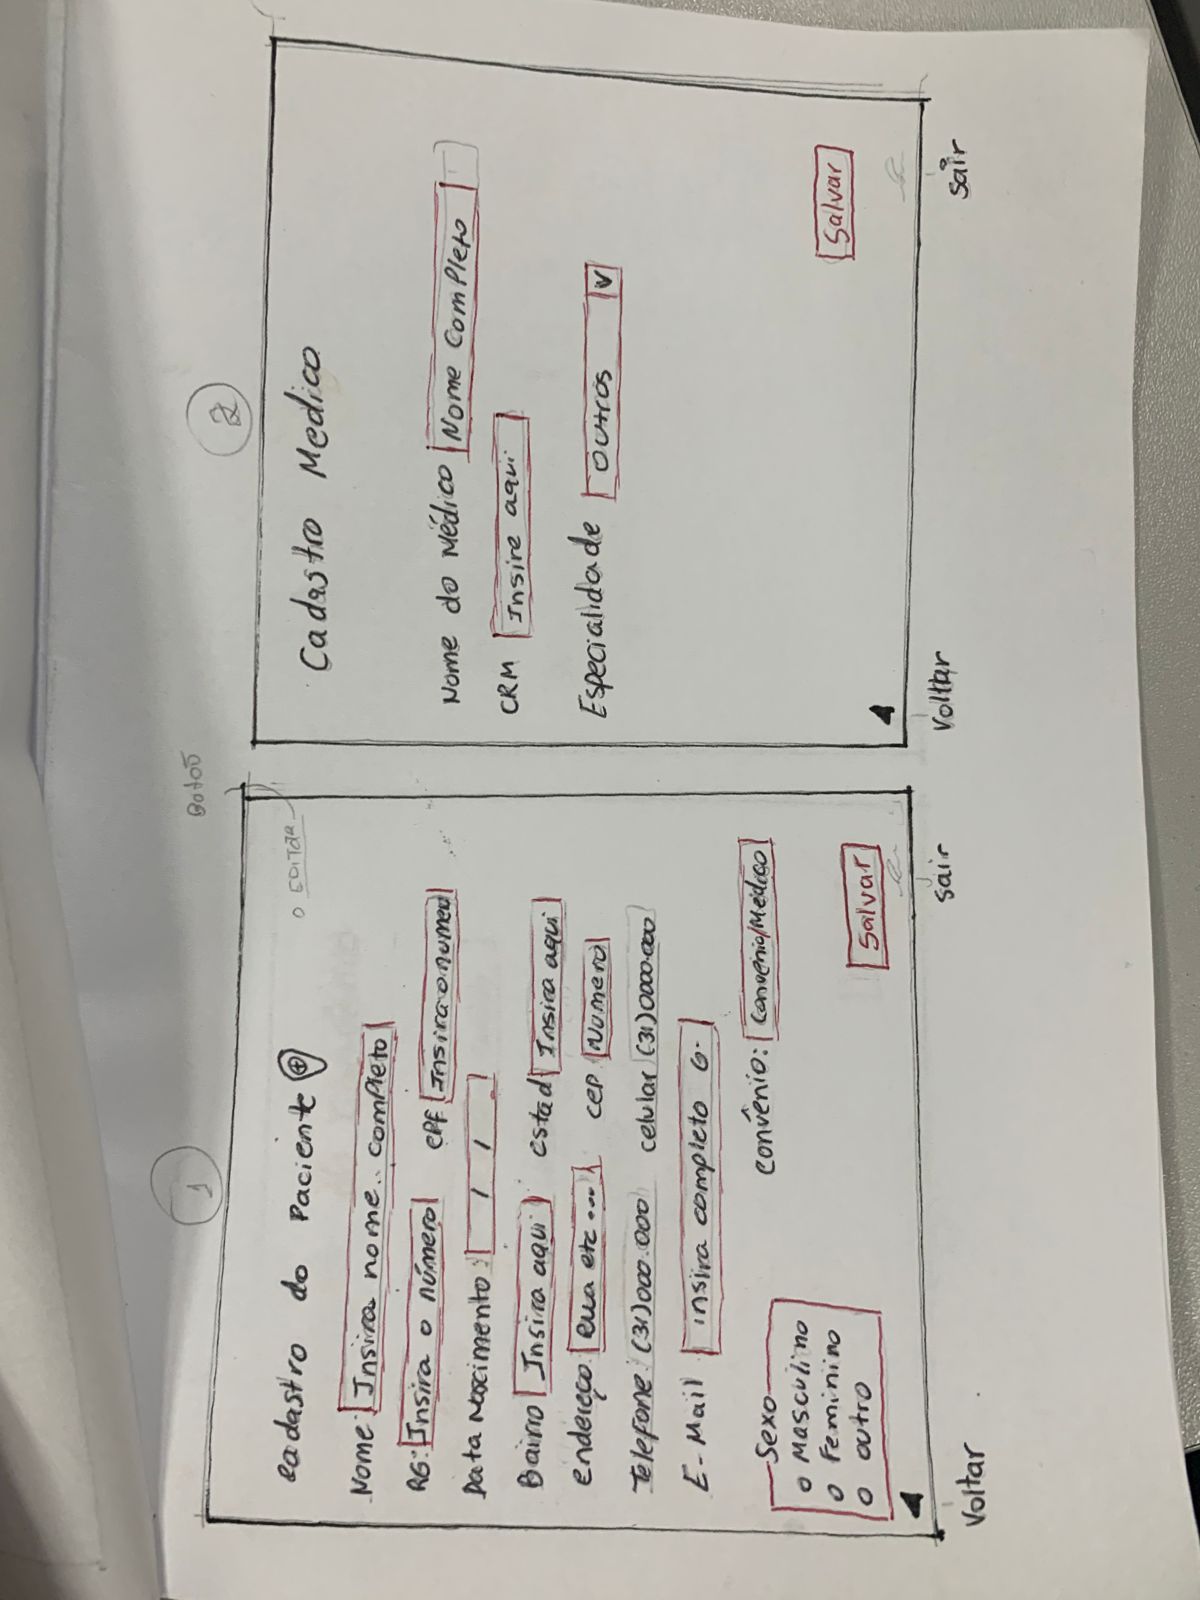 1
Botaõ
o EDITAR
Cadastro do Paciente
Nome: Insira nome.. completo
RG: Insira o número CPF Insira o numero
Data Nascimento: / /
Bairro Insira aqui estad Insira aqui
endereço: Rua etc ... CEP. Numero
Telefone: (31)000.000 celular (31)0000.000
E-Mail insira completo
Sexo
o Masculino
o Feminino
o outro
Convênio: Convênio/Médico
Salvar
Voltar sair
2
Cadastro Medico
Nome do Médico Nome Completo
CRM Insire aqui
Especialidade Outros V
Salvar
Voltar Sair